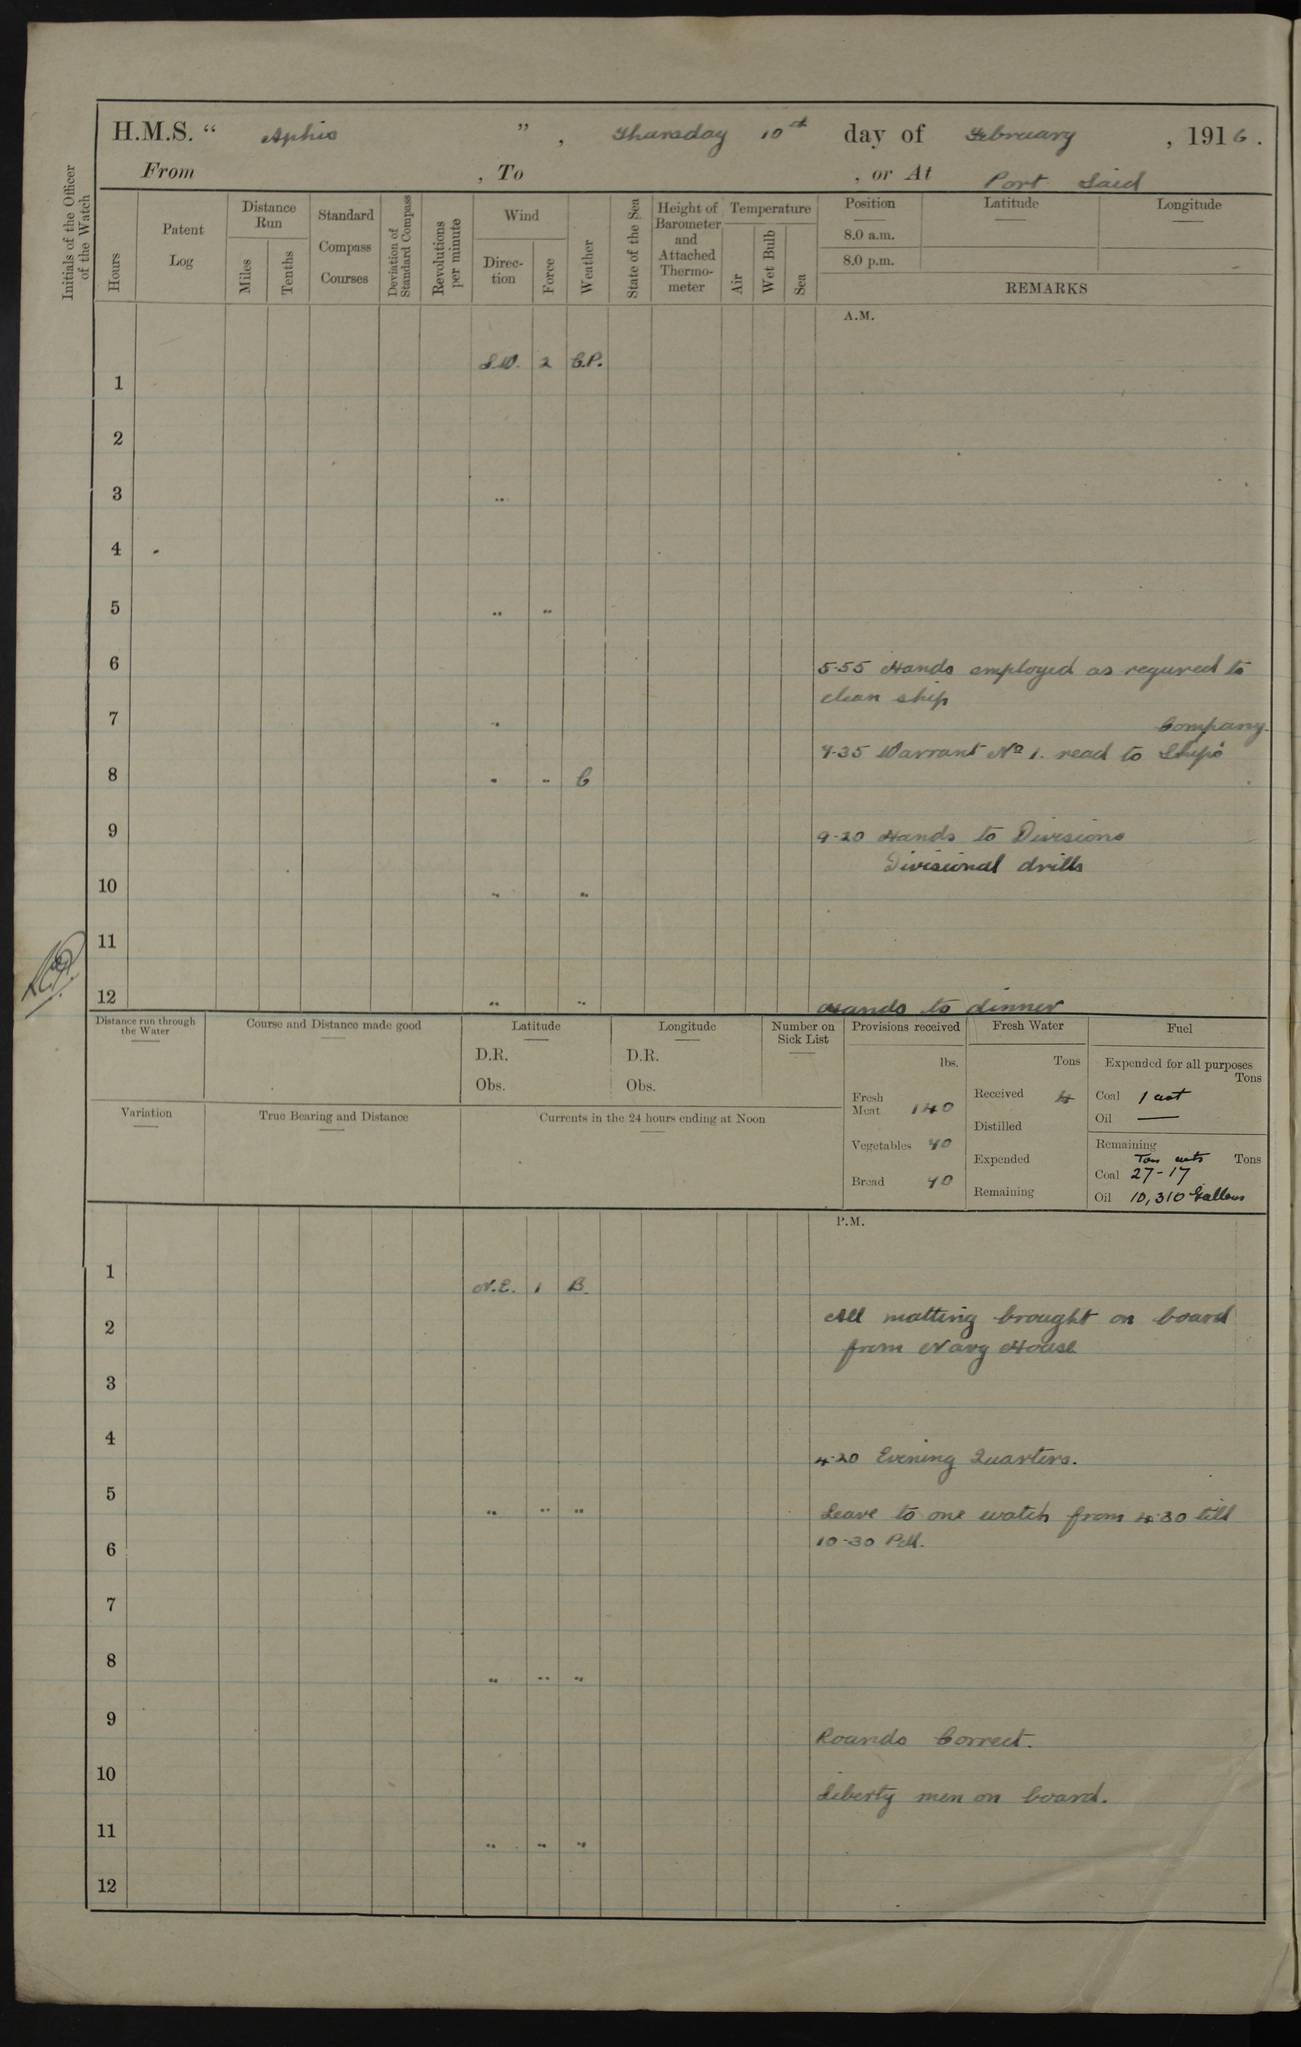 H.M.S. “ Aphis ” , Thursday 10th day of February , 1916 .
From , To , or At Port Said
Initials of the Officer of the Watch
Hours
Patent Log
Distance Run
Miles
Tenths
Standard Compass Courses
Deviation of Standard Compass
Revolutions per minute
Wind
Direction
Force
Weather
State of the Sea
Height of Barometer and Attached Thermometer
Temperature
Air
Wet Bulb
Sea
Position
Latitude
Longitude
8.0 a.m.
8.0 p.m.
REMARKS
A.M.
S.W. 2 C.P.
1
2
3 ..
4
5 .. ..
6
5-55 Hands employed as requred to
clean ship
7 ..
Company.
7-35 Warrant No 1. read to Ship's
8 .. .. C
9
9-20 Hands to Divisions
Divisional drills
10 .. ..
11
12 .. ..
Hands to dinner
Distance run through the Water
Course and Distance made good
Latitude
D.R.
Obs.
Longitude
D.R.
Obs.
Number on Sick List
Provisions received
lbs.
Fresh Meat 140
Vegetables 40
Bread 40
Fresh Water
Tons
Received 4
Distilled
Expended
Remaining
Fuel
Expended for all purposes
Tons
Coal 1 cwt
Oil —
Remaining
Ton cwts Tons
Coal 27-17
Oil 10,310 Gallons
Variation
True Bearing and Distance
Currents in the 24 hours ending at Noon
P.M.
1 N.E. 1 B.
2
All matting brought on board
from Navy House
3
4
4-20 Evening Quarters.
5 .. .. ..
Leave to one watch from 4-30 till
10-30 P.M.
6
7
8 .. .. ..
9
Rounds Correct.
10
Liberty men on board.
11 .. .. ..
12